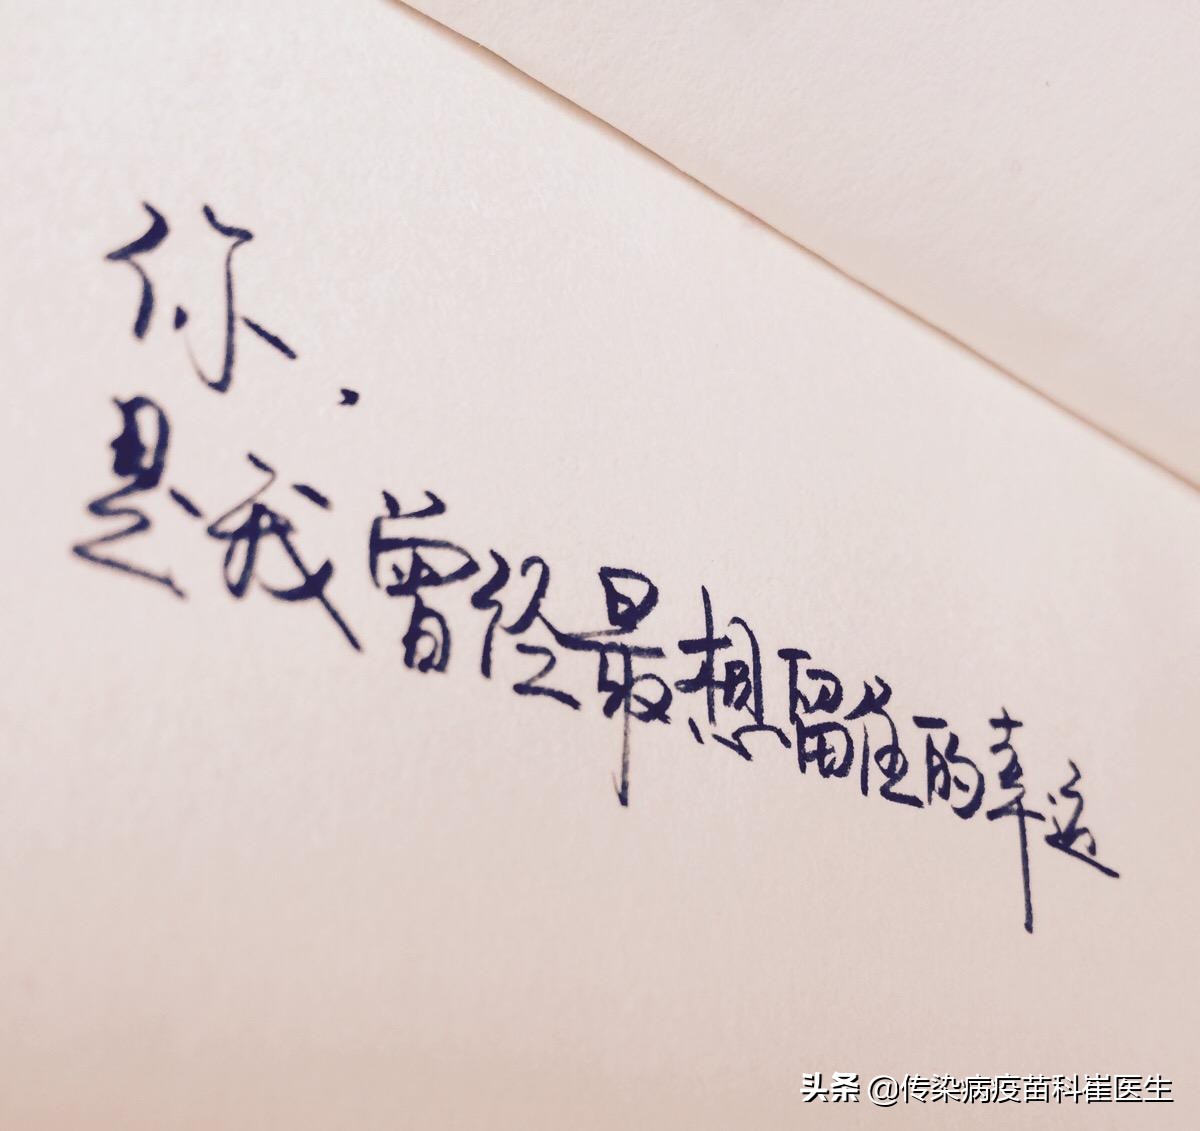 你，
是我曾经最想留住的幸运
头条 @传染病疫苗科崔医生